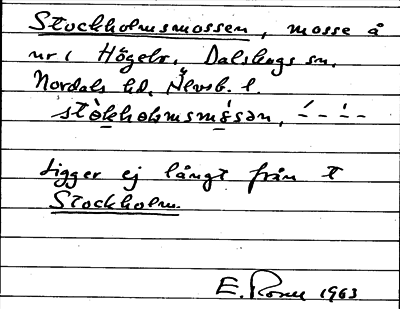 Stockholmsmossen, mosse å
nr 1 Högelr. Dalskogs sn.
Nordals hd. Älvsb. l.
stòkholmsmósən, ´– – ` – –
Ligger ej långt från t
Stockholm.
E. Rosell 1963